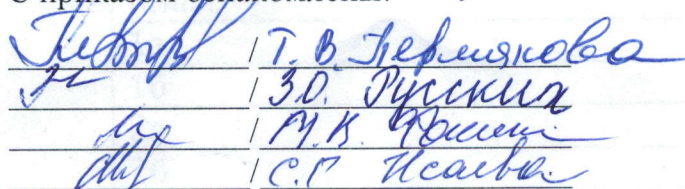 С приказом ознакомлены:
/ Т. В. Пермякова
/ З.О. Русских
/ М.К. Фокина
/ С.Г. Исаева